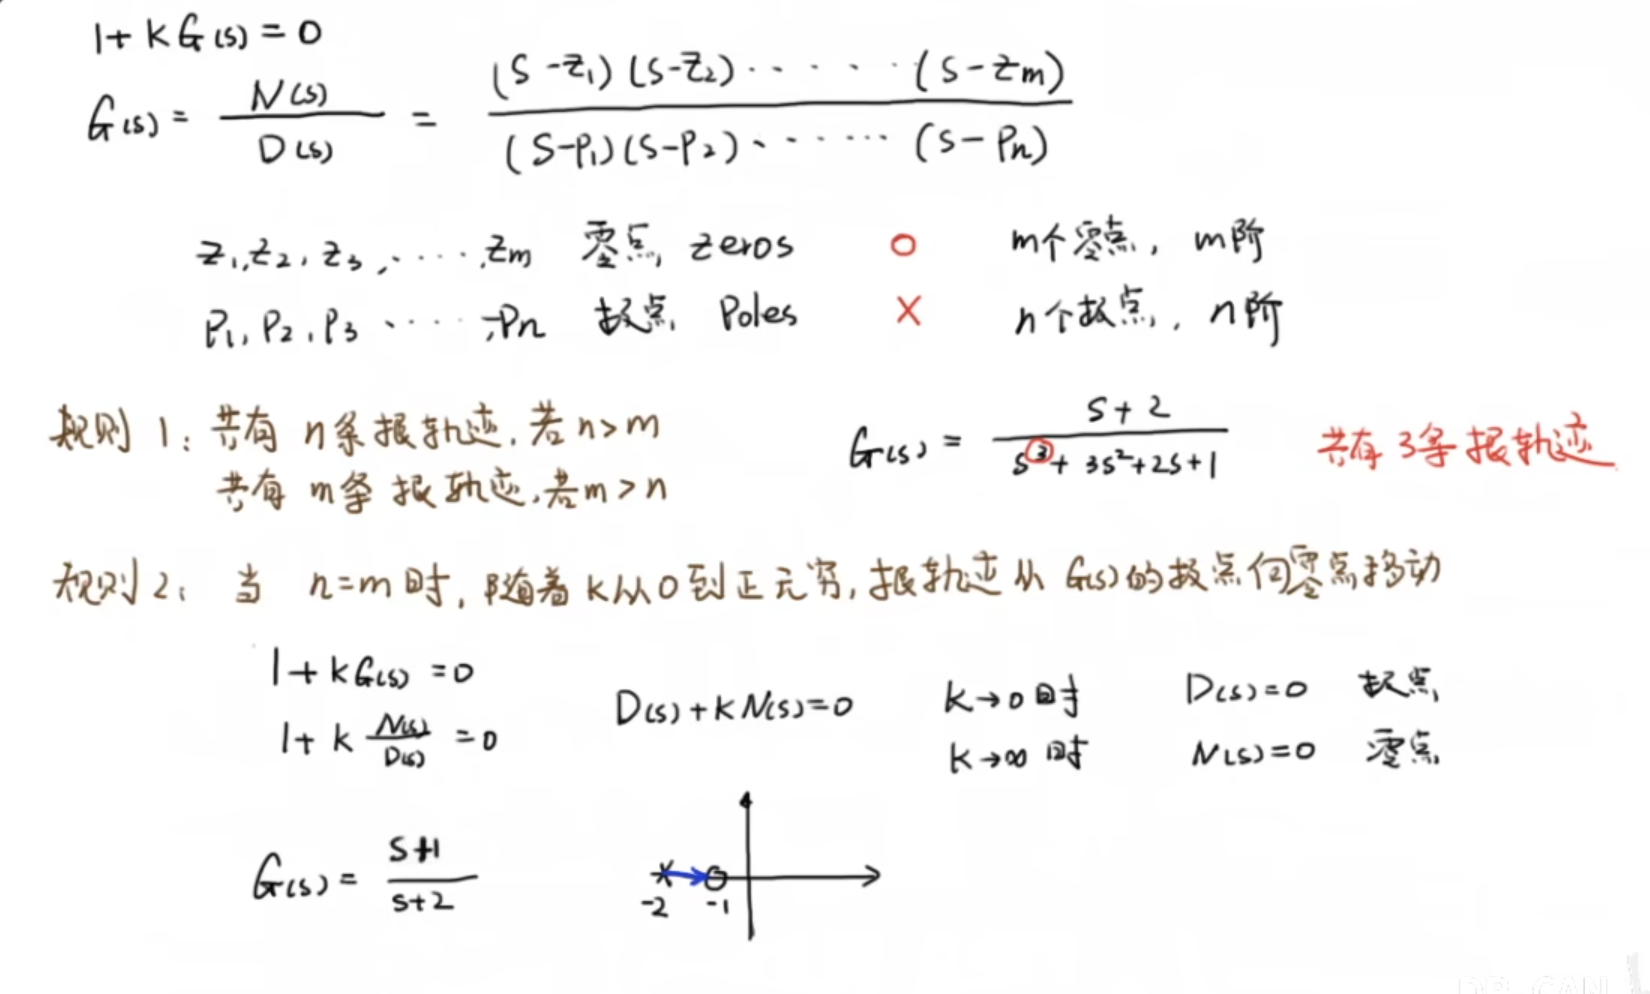 1+KG(s)=0
G(s)= N(s)/D(s) = (s-z₁)(s-z₂)······(s-zm)/(s-p₁)(s-p₂)······(s-pn)
z₁,z₂,z₃,·····,zm 零点 zeros ○ m个零点, m阶
p₁,p₂,p₃·····,pn 极点 Poles × n个极点, n阶
规则1: 共有 n条根轨迹, 若n>m
共有 m条根轨迹, 若m>n
G(s)= s+2/s³+3s²+2s+1 共有3条根轨迹
规则2: 当 n=m时, 随着K从0到正无穷, 根轨迹从G(s)的极点向零点移动
1+KG(s)=0
1+K N(s)/D(s)=0
D(s)+KN(s)=0
K→0时 D(s)=0 极点
K→∞时 N(s)=0 零点
G(s)= s+1/s+2
-2 -1
DR_CAN